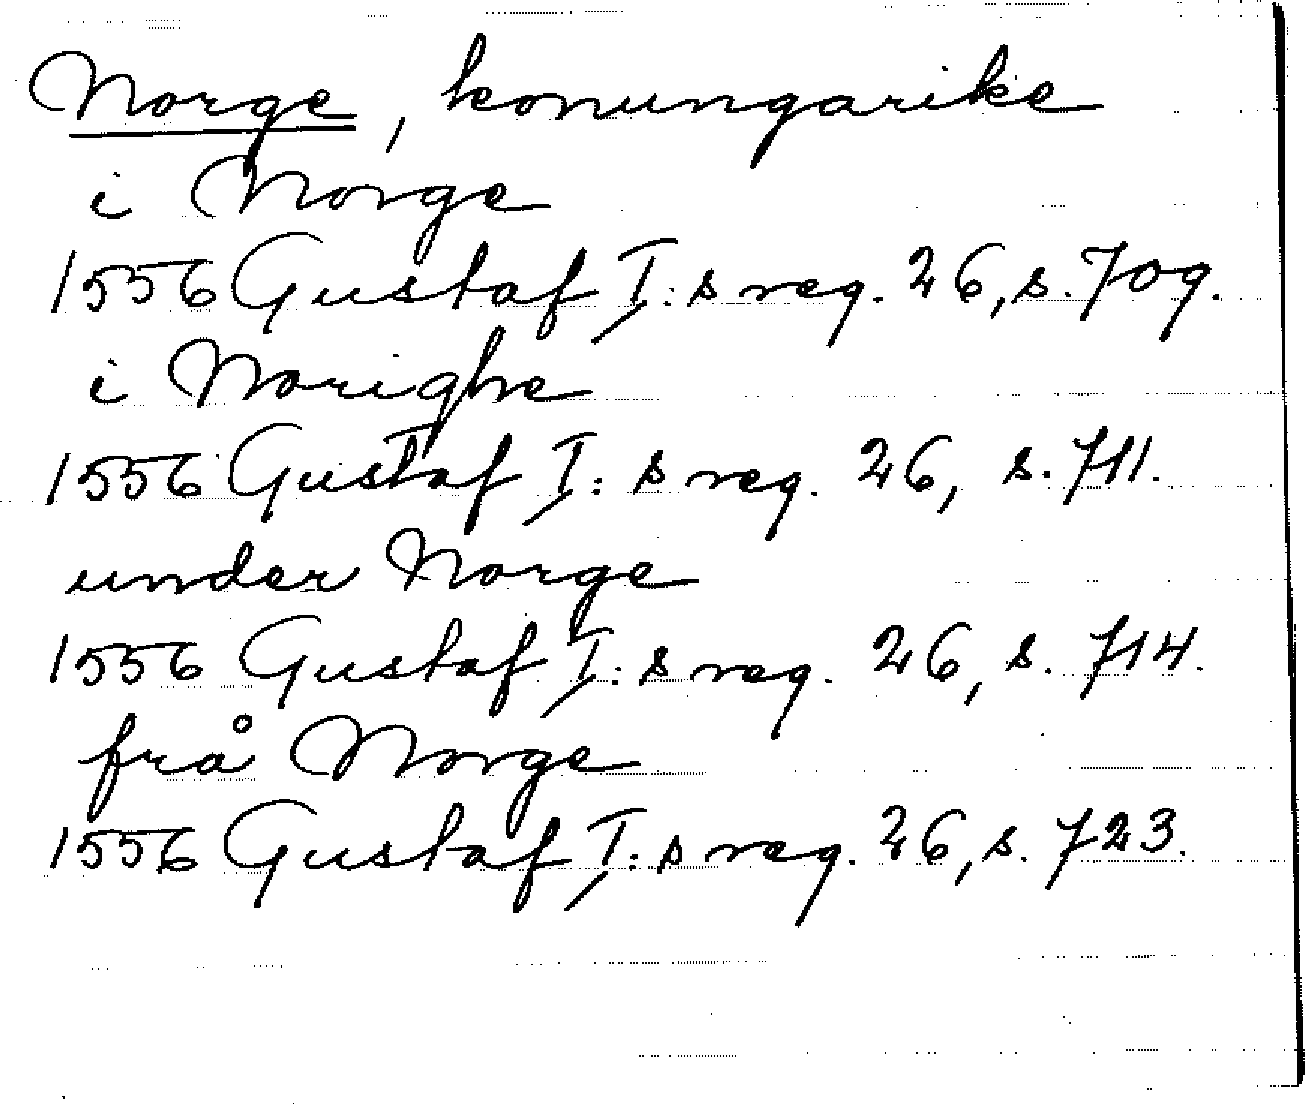 Norge, konungarike
i Norge
1556 Gustaf I:s reg. 26, s. 709.
i Norighe
1556 Gustaf I:s reg. 26, s. 711.
under Norge
1556 Gustaf I:s reg. 26, s. 714.
frå Norge
1556 Gustaf I:s reg. 26, s. 723.